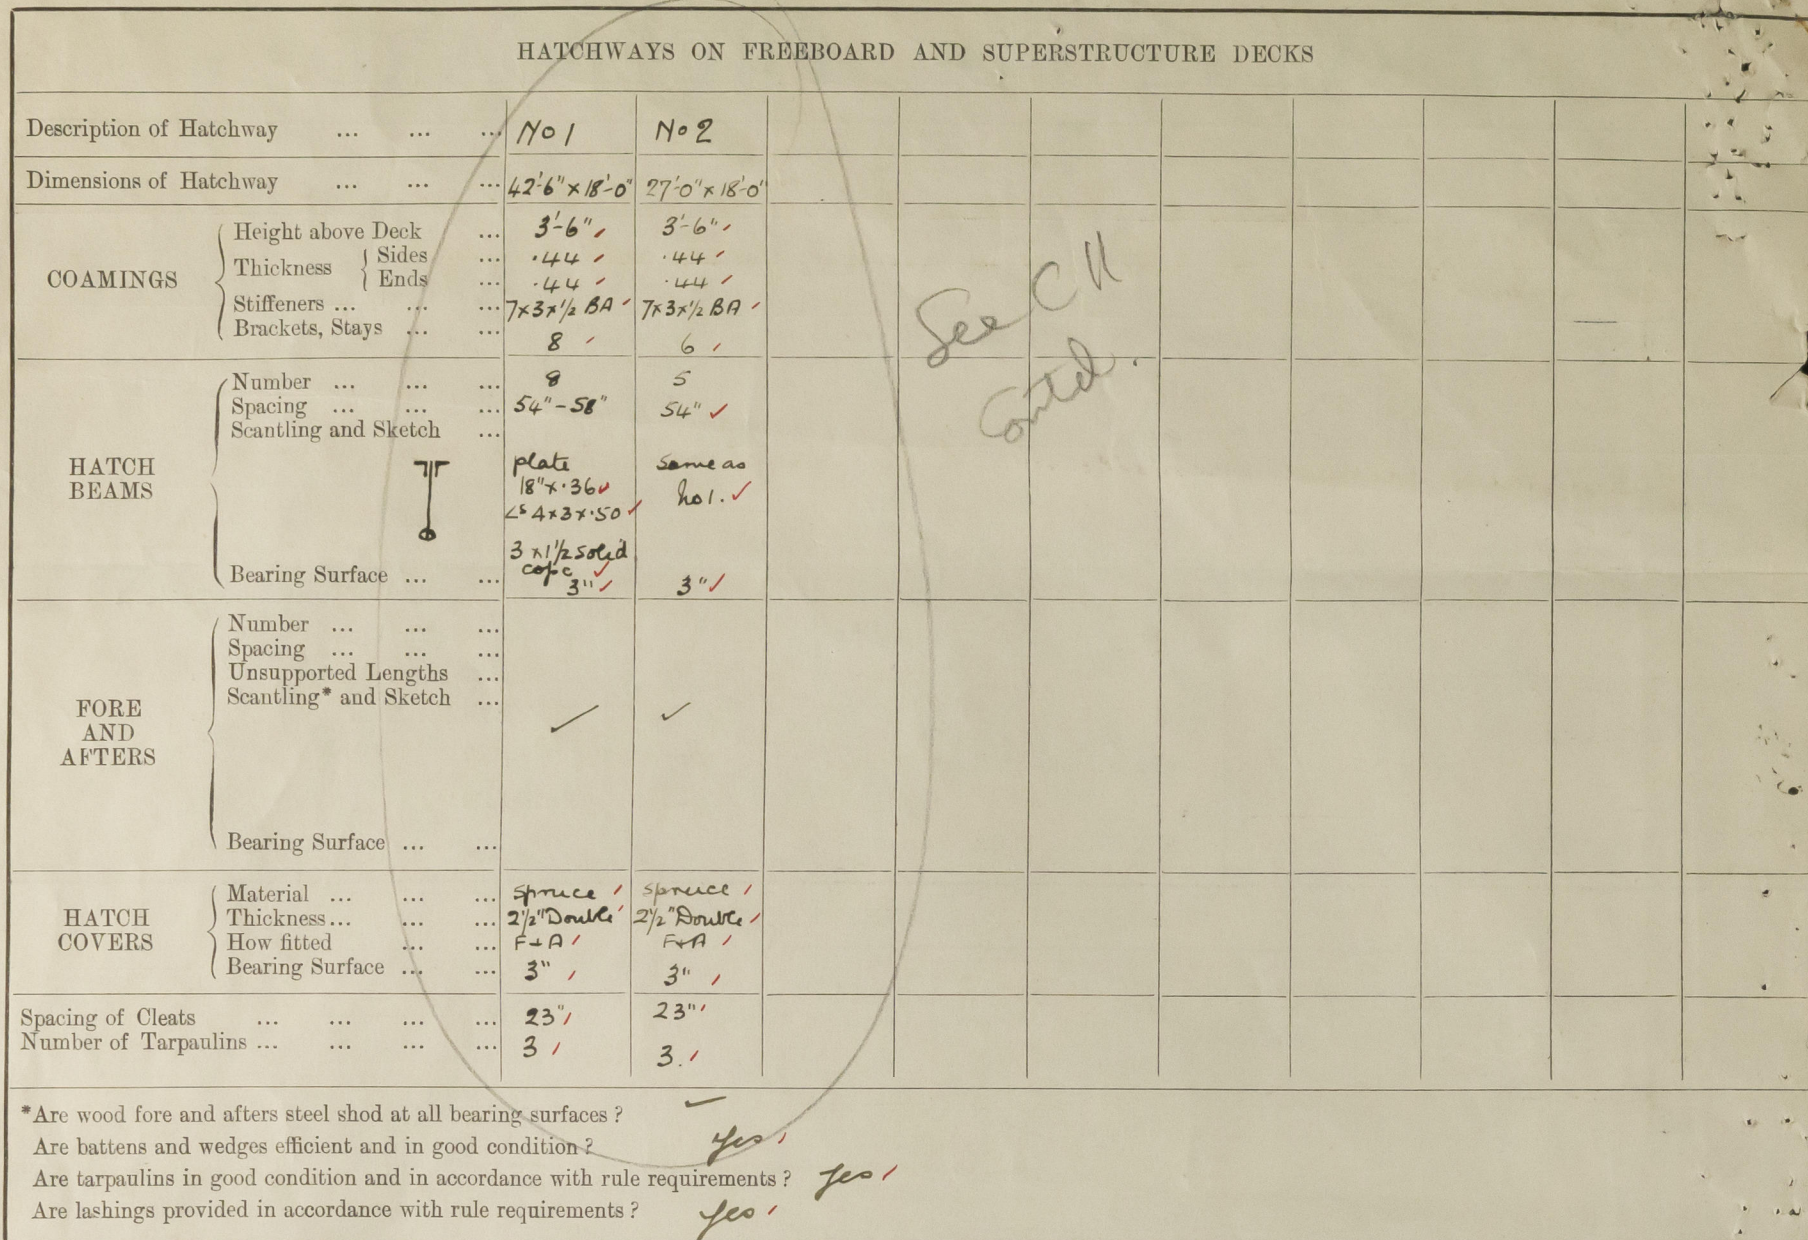 HATCHWAYS ON FREEBOARD AND SUPERSTRUCTURE DECKS
Description of Hatchway ... ... ... No 1 No 2
Dimensions of Hatchway ... ... ... 42'-6" x 18'-0" 27'-0" x 18'-0"
COAMINGS
Height above Deck ... 3'-6" 3'-6"
Thickness
Sides ... .44 .44
Ends ... .44 .44
Stiffeners ... ... ... 7x3x1/2 BA 7x3x1/2 BA
Brackets, Stays ... ... 8 6
See CH
Contd.
HATCH BEAMS
Number ... ... ... 8 5
Spacing ... ... ... 54"-58" 54"
Scantling and Sketch ...
plate same as
18" x .36 No 1.
Ls 4x3x.50
3 x 1 1/2 solid
Bearing Surface ... ... 3" 3"
FORE AND AFTERS
Number ... ... ...
Spacing ... ... ...
Unsupported Lengths ...
Scantling* and Sketch ...
Bearing Surface ... ...
HATCH COVERS
Material ... ... ... Spruce Spruce
Thickness... ... ... 2 1/2" Double 2 1/2" Double
How fitted ... ... F+A F+A
Bearing Surface ... ... 3" 3"
Spacing of Cleats ... ... ... ... 23" 23"
Number of Tarpaulins ... ... ... ... 3 3.
*Are wood fore and afters steel shod at all bearing surfaces ?
Are battens and wedges efficient and in good condition ? Yes
Are tarpaulins in good condition and in accordance with rule requirements ? Yes
Are lashings provided in accordance with rule requirements ? Yes